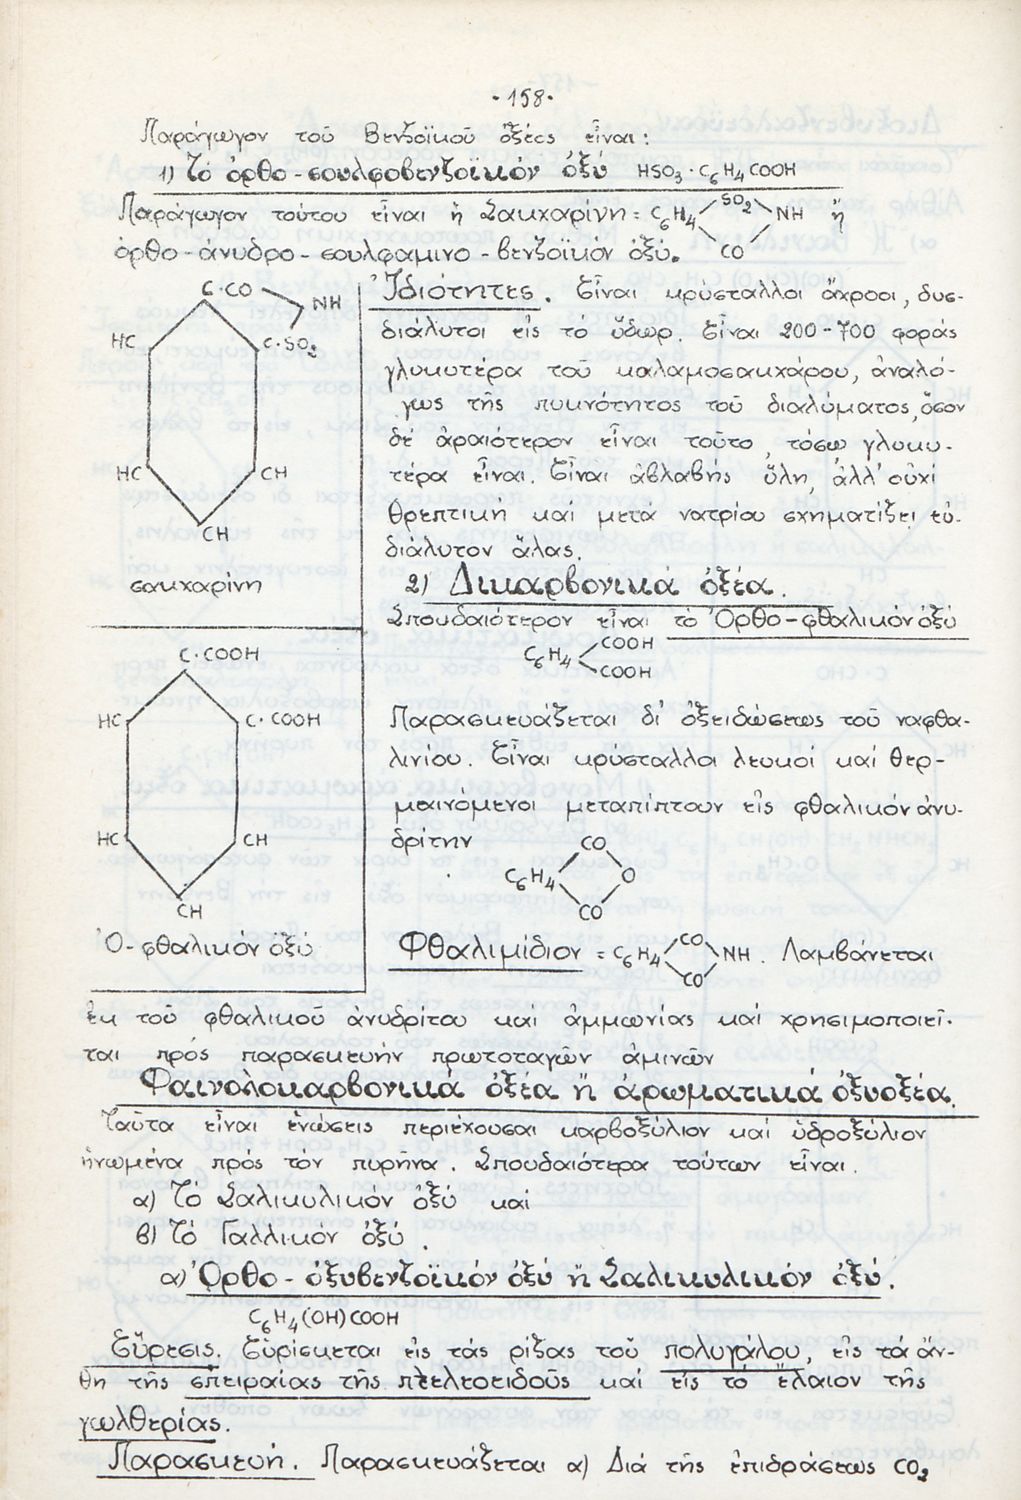 -158-
Παράγωγον τοῦ Βενζοϊκοῦ ὀξέος εἶναι:
1) Τό ὀρθο-σουλφοβενζοϊκόν ὀξύ HSO₃·C₆H₄COOH
Παράγωγον τούτου εἶναι ἡ Σακχαρίνη = C₆H₄ SO₂ CO NH ἤ
ὀρθο-άνυδρο-σουλφαμινο-βενζοϊκόν ὀξύ.
C·CO
NH
HC
C·SO₂
HC
CH
CH
σακχαρίνη
Ἰδιότητες. Εἶναι κρύσταλλοι ἄχροοι, δυσ-
διάλυτοι εἰς τό ὕδωρ. Εἶναι 200-700 φοράς
γλυκυτέρα τοῦ καλαμοσακχάρου, ἀναλό-
γως τῆς πυκνότητος τοῦ διαλύματος, ὅσον
δέ ἀραιότερον εἶναι τοῦτο, τόσω γλυκυ-
τέρα εἶναι. Εἶναι ἀβλαβής ὕλη, ἀλλ' οὐχί
θρεπτική καί μετά νατρίου σχηματίζει εὐ-
διάλυτον ἅλας.
2) Δικαρβονικά ὀξέα.
Σπουδαιότερον εἶναι τό Ὀρθο-φθαλικόν ὀξύ
C₆H₄ COOH COOH
C·COOH
HC
C·COOH
HC
CH
CH
Ὀ-φθαλικόν ὀξύ
Παρασκευάζεται δι' ὀξειδώσεως τοῦ ναφθα-
λινίου. Εἶναι κρυσταλλοι λευκοί καί θερ-
μαινόμενοι μεταπίπτουν εἰς φθαλικόν ἀνυ-
δρίτην
C₆H₄ CO CO O
Φθαλιμίδιον = C₆H₄ CO CO NH. Λαμβάνεται
ἐκ τοῦ φθαλικοῦ ἀνυδρίτου καί ἀμμωνίας καί χρησιμοποιεῖ-
ται πρός παρασκευήν πρωτοταγῶν ἀμινῶν
Φαινολοκαρβονικά ὀξέα ἤ ἀρωματικά ὀξυοξέα.
Ταῦτα εἶναι ἑνώσεις περιέχουσαι καρβοξύλιον καί ὑδροξύλιον
ἡνωμένα πρός τόν πυρῆνα. Σπουδαιότερα τούτων εἶναι.
α) Τό Σαλικυλικόν ὀξύ καί
β) Τό Γαλλικόν ὀξύ.
α) Ὀρθο-ὀξυβενζοϊκόν ὀξύ ἤ Σαλικυλικόν ὀξύ.
C₆H₄(OH)COOH
Εὕρεσις. Εὑρίσκεται εἰς τάς ρίζας τοῦ πολυγάλου, εἰς τά ἄν-
θη τῆς σπειραίας τῆς πτελεοειδοῦς καί εἰς τό ἔλαιον τῆς
γωλθερίας.
Παρασκευή. Παρασκευάζεται α) Διά τῆς ἐπιδράσεως CO₂